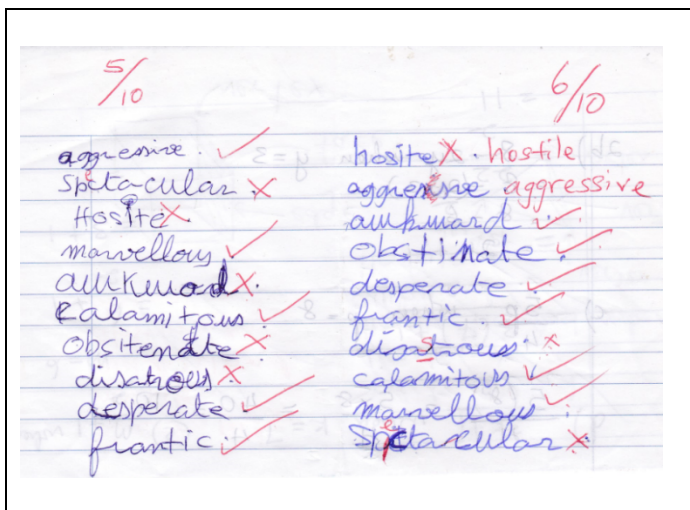 5/10
aggressive.
Spetacular
Hosite
marvellous
awkward.
Calamitous
Obsitenate
disatrous
desperate
frantic.
6/10
hosite. hostile
aggressive aggressive
awkward.
Obstinate.
desperate
frantic.
disastrous.
calamitous
marvellous.
Spectacular